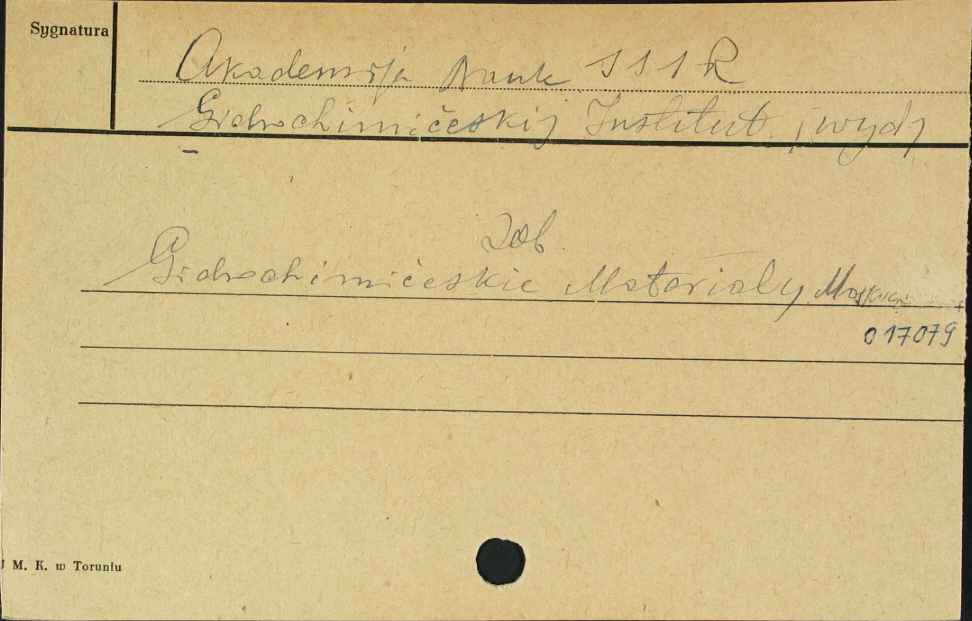 Sygnatura
Akademija Nauk SSSR
Gidrochimičeskij Institut [wyd]
Zob.
Gidrochimičeskie Materialy Moskva
017079
M. K. w Toruniu